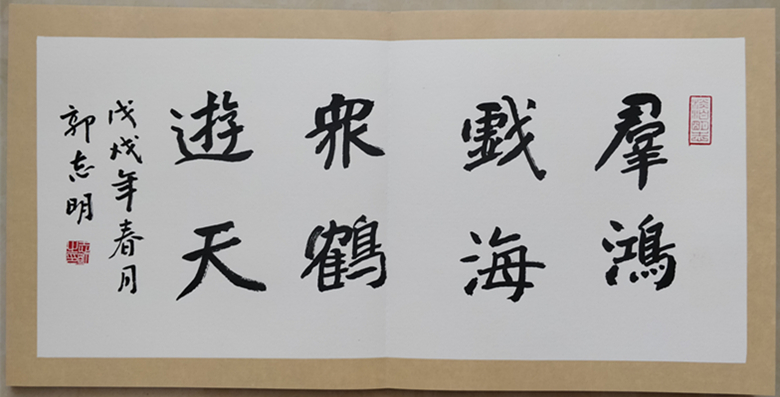 羣鴻
戲海
眾鶴
遊天
戊戌年春月
郭志明